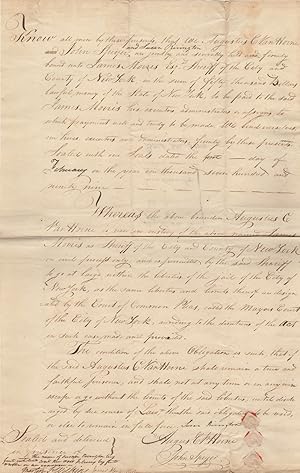 Know all men by these presents, that We Augustus C Van Horne
and Isaac Covington
and John Speyer are jointly and severally held and firmly
bound unto James Morris Esqr Sheriff of the City and
County of New York in the sum of Thousand Dollars
lawful money of the State of New York, to be paid to the said
James Morris his executors administrators or assigns, to
which payment well and truly to be made We bind ourselves
our heirs executors and administrators, firmly by these presents.
Sealed with our Seals dated the first day of
February in the year one thousand seven hundred and
ninety nine
Whereas the above bounden Augustus C
Van Horne is now in custody of the above named James
Morris as Sheriff of the City and County of New York
on and is permitted by the said Sheriff
to go at large within the liberties of the gaol of the City of
New York, as the same liberties and bounds thereof are
by the Court of Common Pleas, called the Mayors Court
of the City of New York, according to the directions of the Act
in such case made and provided.
The condition of the above Obligation is such that if
the said Augustus C Van Horne shall remain a true and
faithful prisoner, and shall not at any time or in any wise
escape or go without the limits of the said liberties, until
by due course of Law
or else to remain in full force
Sealed and delivered
August C V Horne
John Speyer